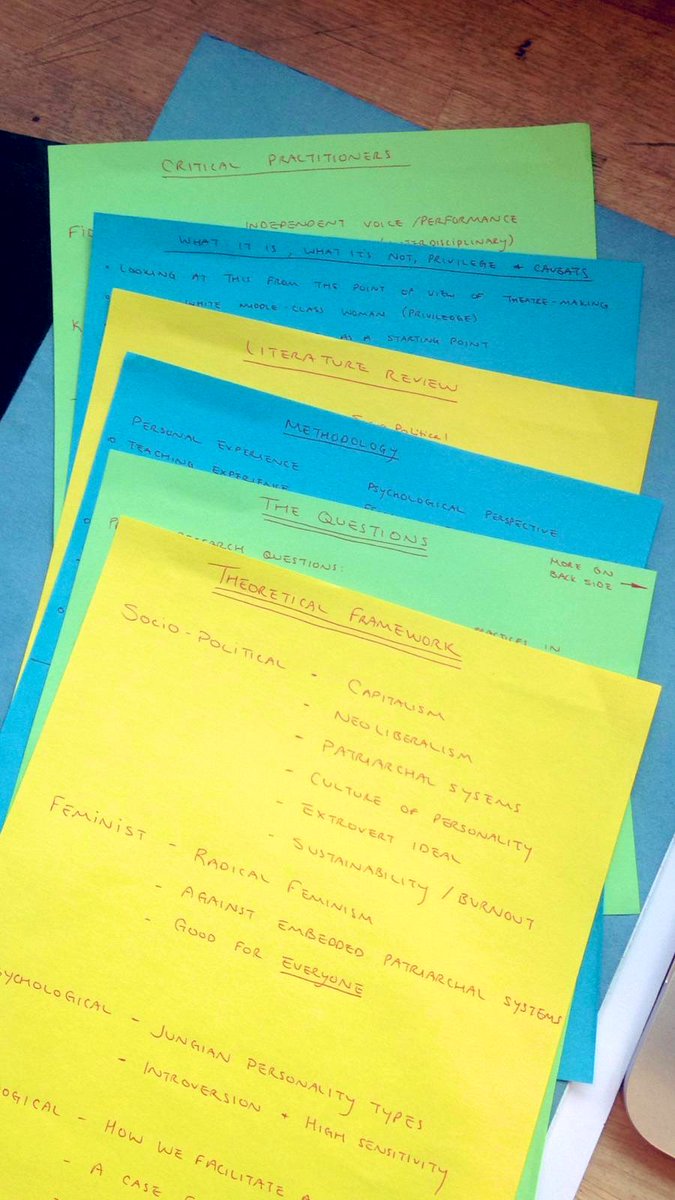 CRITICAL PRACTITIONERS
INDEPENDENT VOICE/PERFORMANCE
DISCIPLINARY)
WHAT IT IS, WHAT ITS NOT, PRIVILEGE + CAVEATS
LOOKING AT THIS FROM THE POINT OF VIEW OF THEATRE-MAKING
WHITE MIDDLE-CLASS WOMAN (PRIVILEDGE)
AS A STARTING POINT
LITERATURE REVIEW
Political
METHODOLOGY
PERSONAL EXPERIENCE
TEACHING EXPERIENCE
PSYCHOLOGICAL PERSPECTIVE
THE QUESTIONS
RESEARCH QUESTIONS:
MORE ON
BACK SIDE →
PRACTICES IN
THEORETICAL FRAMEWORK
SOCIO-POLITICAL - CAPITALISM
- NEOLIBERALISM
- PATRIARCHAL SYSTEMS
- CULTURE OF PERSONALITY
- EXTROVERT IDEAL
- SUSTAINABILITY/BURNOUT
FEMINIST - RADICAL FEMINISM
- AGAINST EMBEDDED PATRIARCHAL SYSTEMS
- GOOD FOR EVERYONE
SYCHOLOGICAL - JUNGIAN PERSONALITY TYPES
- INTROVERSION + HIGH SENSITIVITY
OGICAL - HOW WE FACILITATE A
- A CASE